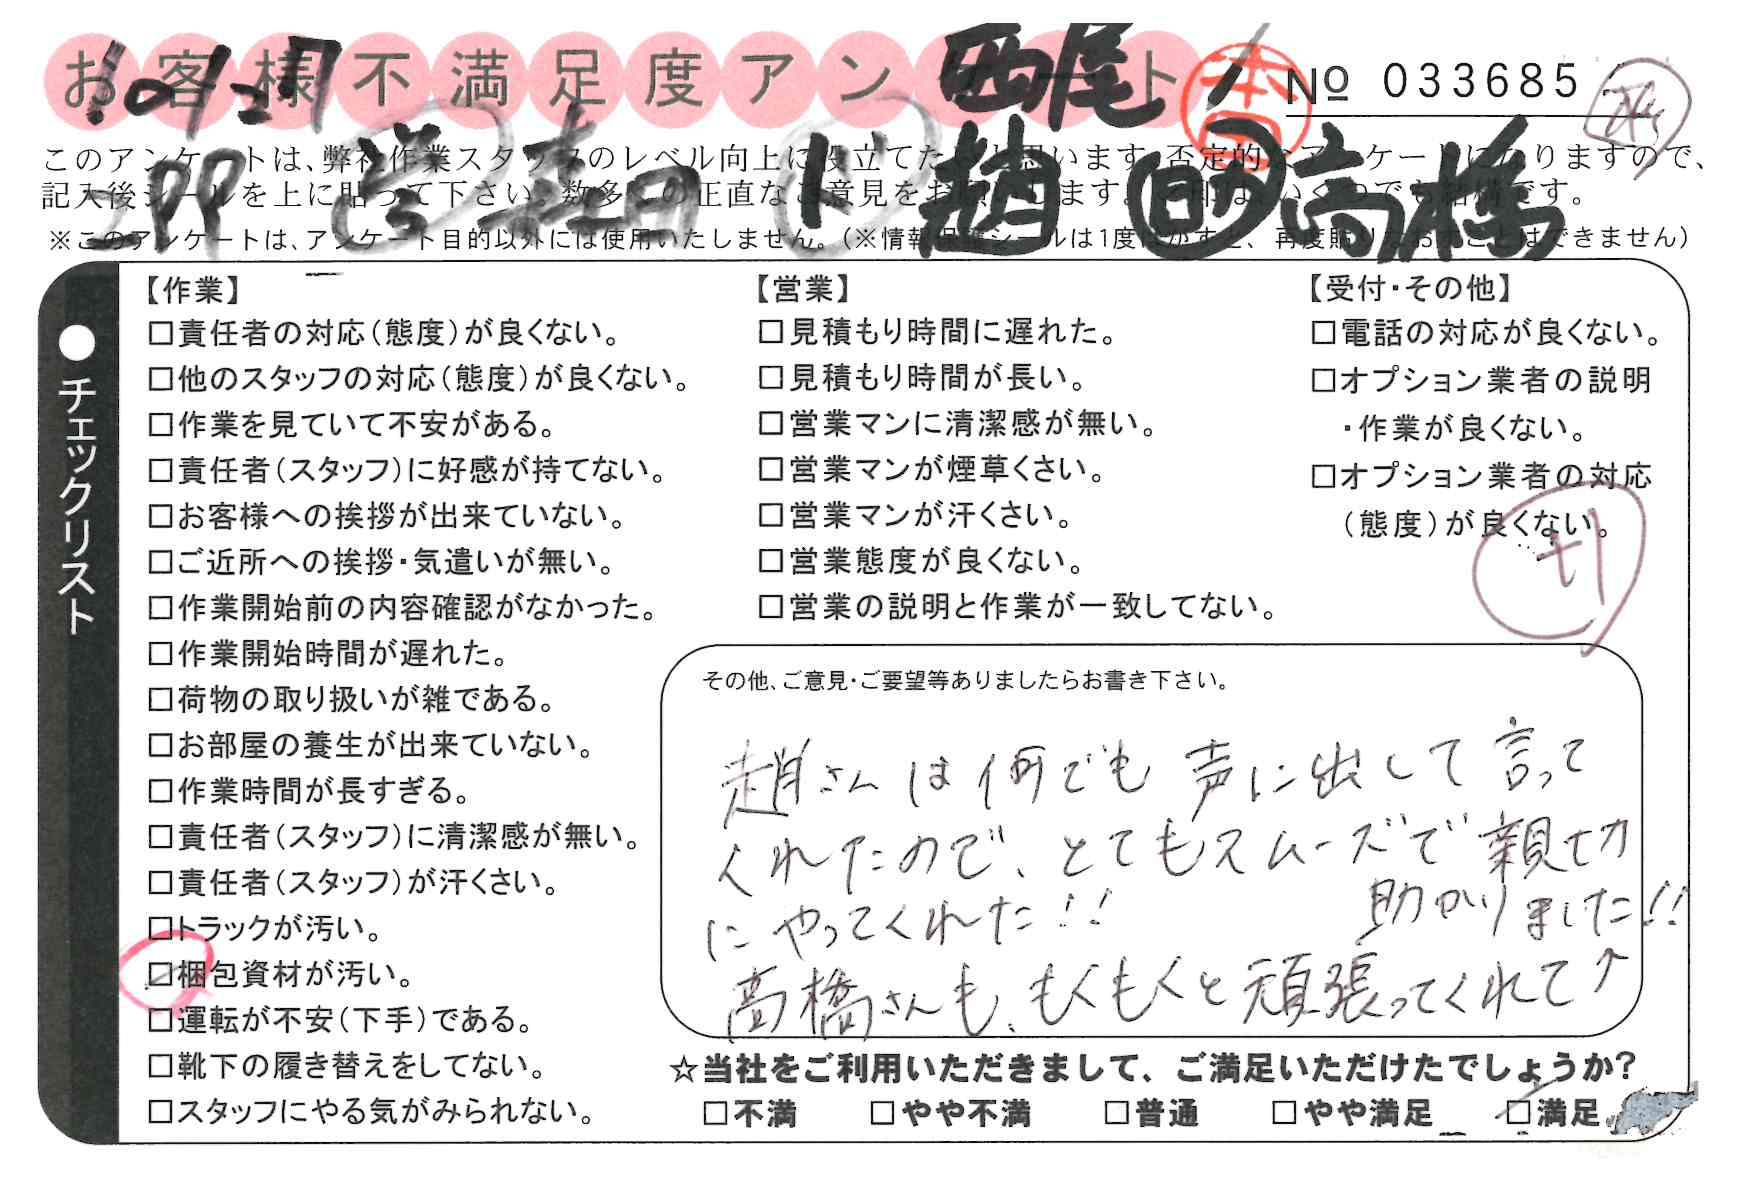 お客様不満足度アンケート
西尾
本田
№ 033685
このアンケートは、弊社作業スタッフのレベル向上に役立てたいと思います。否定的なアンケートになりますので、
記入後シールを上に貼って下さい。数多くの正直なご意見をお願いします。
趙 高橋
※このアンケートは、アンケート目的以外には使用いたしません。(※情報保護シールは1度はがすと、再度貼りなおすことはできません)
●チェックリスト
【作業】
□責任者の対応(態度)が良くない。
□他のスタッフの対応(態度)が良くない。
□作業を見ていて不安がある。
□責任者(スタッフ)に好感が持てない。
□お客様への挨拶が出来ていない。
□ご近所への挨拶・気遣いが無い。
□作業開始前の内容確認がなかった。
□作業開始時間が遅れた。
□荷物の取り扱いが雑である。
□お部屋の養生が出来ていない。
□作業時間が長すぎる。
□責任者(スタッフ)に清潔感が無い。
□責任者(スタッフ)が汗くさい。
□トラックが汚い。
□梱包資材が汚い。
□運転が不安(下手)である。
□靴下の履き替えをしてない。
□スタッフにやる気がみられない。
【営業】
□見積もり時間に遅れた。
□見積もり時間が長い。
□営業マンに清潔感が無い。
□営業マンが煙草くさい。
□営業マンが汗くさい。
□営業態度が良くない。
□営業の説明と作業が一致してない。
【受付・その他】
□電話の対応が良くない。
□オプション業者の説明
・作業が良くない。
□オプション業者の対応
(態度)が良くない。
+1
その他、ご意見・ご要望等ありましたらお書き下さい。
趙さんは何でも声に出して言って
くれたので、とてもスムーズで親切
にやってくれた!!
高橋さんも、もくもくと頑張ってくれて↑
助かりました!!
☆当社をご利用いただきまして、ご満足いただけたでしょうか?
□不満 □やや不満 □普通 □やや満足 □満足